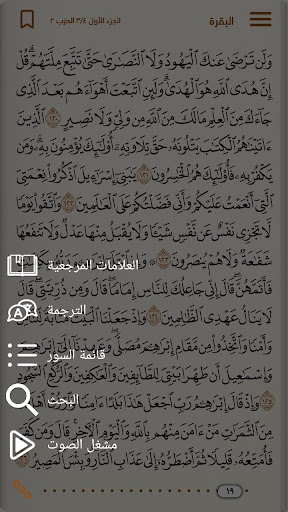 البقرة
الجزء الأول ٣/٤ الحزب ٢
وَلَن تَرْضَىٰ عَنكَ ٱلْيَهُودُ وَلَا ٱلنَّصَٰرَىٰ حَتَّىٰ تَتَّبِعَ مِلَّتَهُمْ ۗ قُلْ
إِنَّ هُدَى ٱللَّهِ هُوَ ٱلْهُدَىٰ ۗ وَلَئِنِ ٱتَّبَعْتَ أَهْوَآءَهُم بَعْدَ ٱلَّذِى
جَآءَكَ مِنَ ٱلْعِلْمِ ۙ مَا لَكَ مِنَ ٱللَّهِ مِن وَلِىٍّ وَلَا نَصِيرٍ ١٢٠ ٱلَّذِينَ
ءَاتَيْنَٰهُمُ ٱلْكِتَٰبَ يَتْلُونَهُۥ حَقَّ تِلَاوَتِهِۦٓ أُو۟لَٰٓئِكَ يُؤْمِنُونَ بِهِۦ ۗ وَمَن
يَكْفُرْ بِهِۦ فَأُو۟لَٰٓئِكَ هُمُ ٱلْخَٰسِرُونَ ١٢١ يَٰبَنِىٓ إِسْرَٰٓءِيلَ ٱذْكُرُوا۟ نِعْمَتِىَ
ٱلَّتِىٓ أَنْعَمْتُ عَلَيْكُمْ وَأَنِّى فَضَّلْتُكُمْ عَلَى ٱلْعَٰلَمِينَ ١٢٢ وَٱتَّقُوا۟ يَوْمًا
لَّا تَجْزِى نَفْسٌ عَن نَّفْسٍ شَيْـًٔا وَلَا يُقْبَلُ مِنْهَا عَدْلٌ وَلَا تَنفَعُهَا
شَفَٰعَةٌ وَلَا هُمْ يُنصَرُونَ ١٢٣
العلامات المرجعية
فَأَتَمَّهُنَّ ۖ قَالَ إِنِّى جَاعِلُكَ لِلنَّاسِ إِمَامًا ۖ قَالَ وَمِن ذُرِّيَّتِى ۖ قَالَ
لَا يَنَالُ عَهْدِى ٱلظَّٰلِمِينَ ١٢٤ وَإِذْ جَعَلْنَا ٱلْبَيْتَ مَثَابَةً لِّلنَّاسِ
الترجمة
وَأَمْنًا وَٱتَّخِذُوا۟ مِن مَّقَامِ إِبْرَٰهِۦمَ مُصَلًّى ۖ وَعَهِدْنَآ إِلَىٰٓ إِبْرَٰهِۦمَ
قائمة السور
وَإِسْمَٰعِيلَ أَن طَهِّرَا بَيْتِىَ لِلطَّآئِفِينَ وَٱلْعَٰكِفِينَ وَٱلرُّكَّعِ ٱلسُّجُودِ
١٢٥ وَإِذْ قَالَ إِبْرَٰهِۦمُ رَبِّ ٱجْعَلْ هَٰذَا بَلَدًا ءَامِنًا وَٱرْزُقْ أَهْلَهُۥ
البحث
مِنَ ٱلثَّمَرَٰتِ مَنْ ءَامَنَ مِنْهُم بِٱللَّهِ وَٱلْيَوْمِ ٱلْءَاخِرِ ۖ قَالَ وَمَن كَفَرَ
مشغل الصوت
فَأُمَتِّعُهُۥ قَلِيلًا ثُمَّ أَضْطَرُّهُۥٓ إِلَىٰ عَذَابِ ٱلنَّارِ ۖ وَبِئْسَ ٱلْمَصِيرُ ١٢٦
١٩